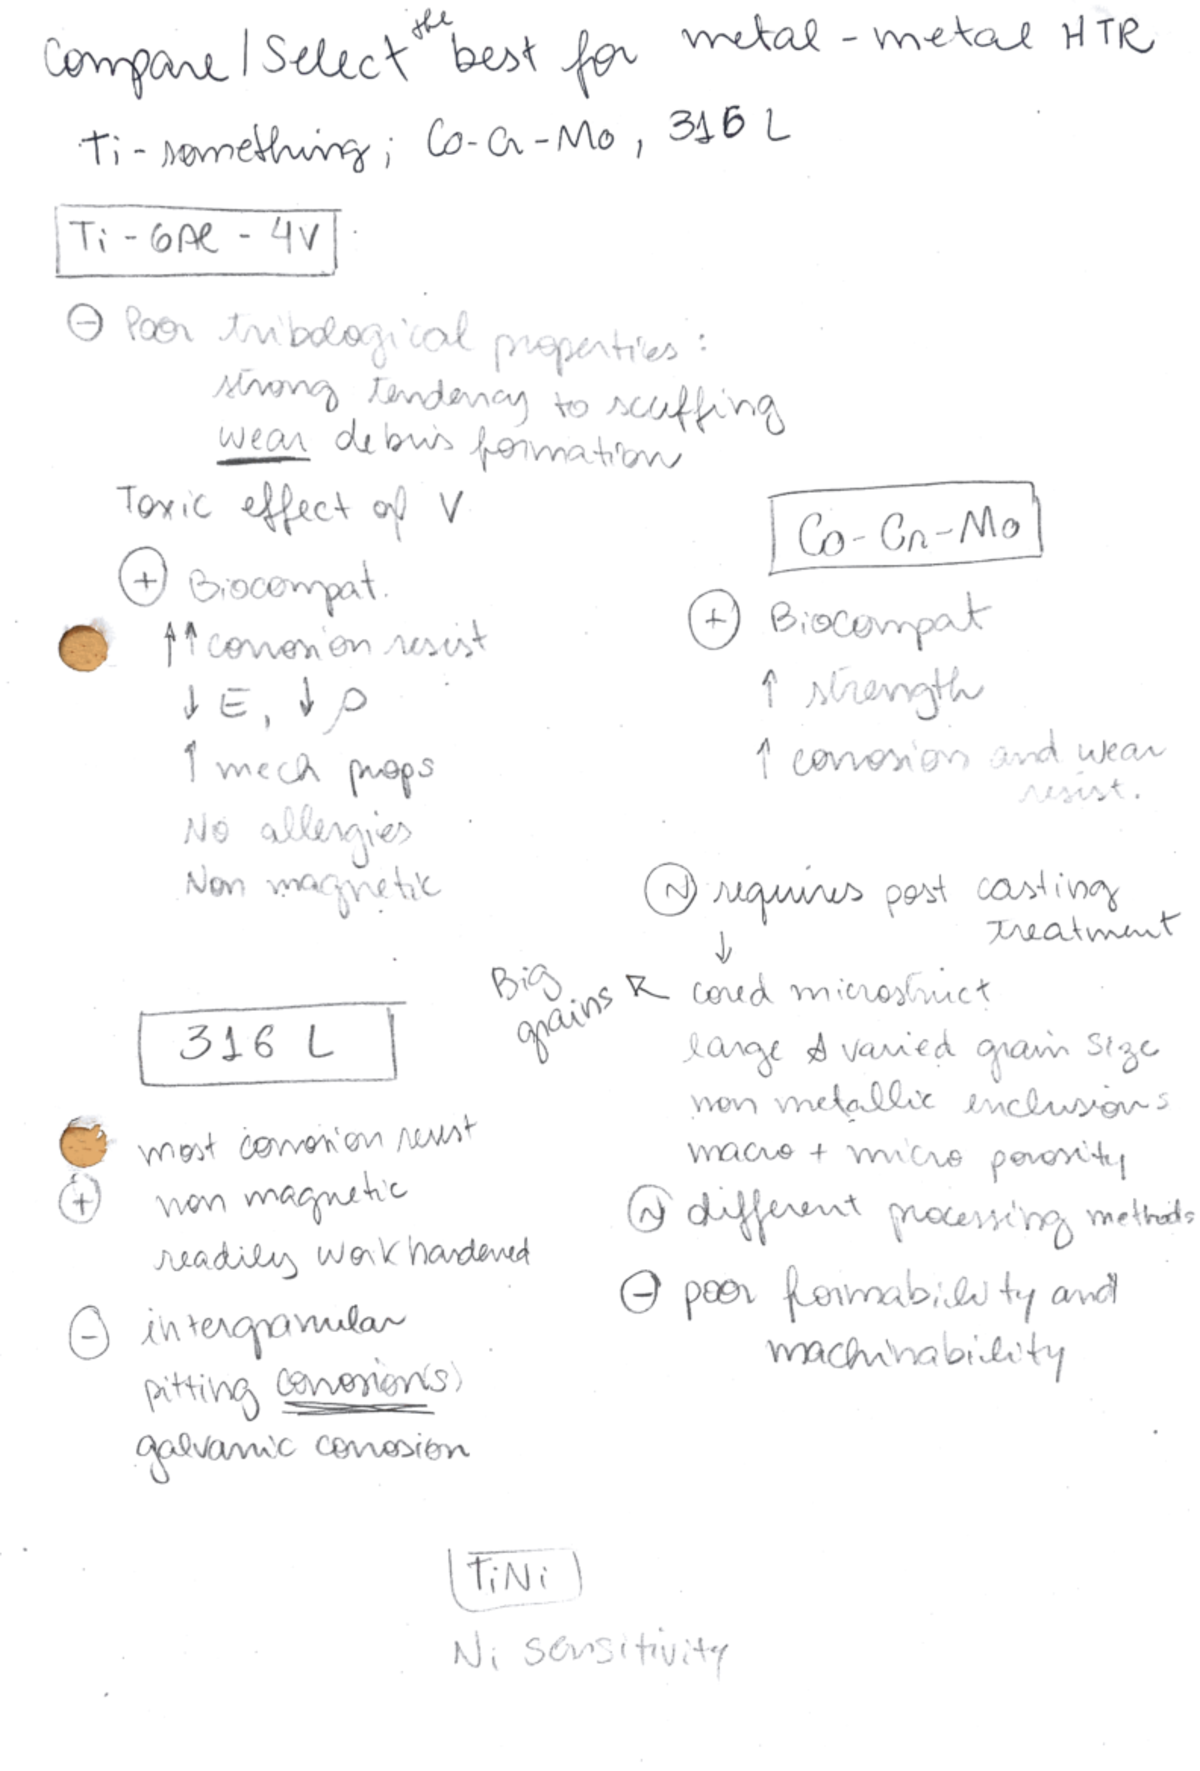 Compare/Select the best for metal-metal HTR
Ti-something; Co-Cr-Mo, 316 L
Ti-6Al-4V
⊖ Poor tribological properties:
strong tendency to scuffing
wear debris formation
Toxic effect of V
⊕ Biocompat.
↑↑ corrosion resist
↓ E, ↓ ρ
↑ mech props
No allergies
Non magnetic
Co-Cr-Mo
⊕ Biocompat
↑ strength
↑ corrosion and wear
resist.
Ⓝ requires post casting
treatment
↓
Big
grains ↖ cored microstruct
large & varied grain size
non metallic inclusions
macro + micro porosity
Ⓝ different processing methods
⊖ poor formability and
machinability
316 L
most corrosion resist
⊕ non magnetic
readily work hardened
⊖ intergranular
pitting corrosion(s)
galvanic corrosion
TiNi
Ni sensitivity